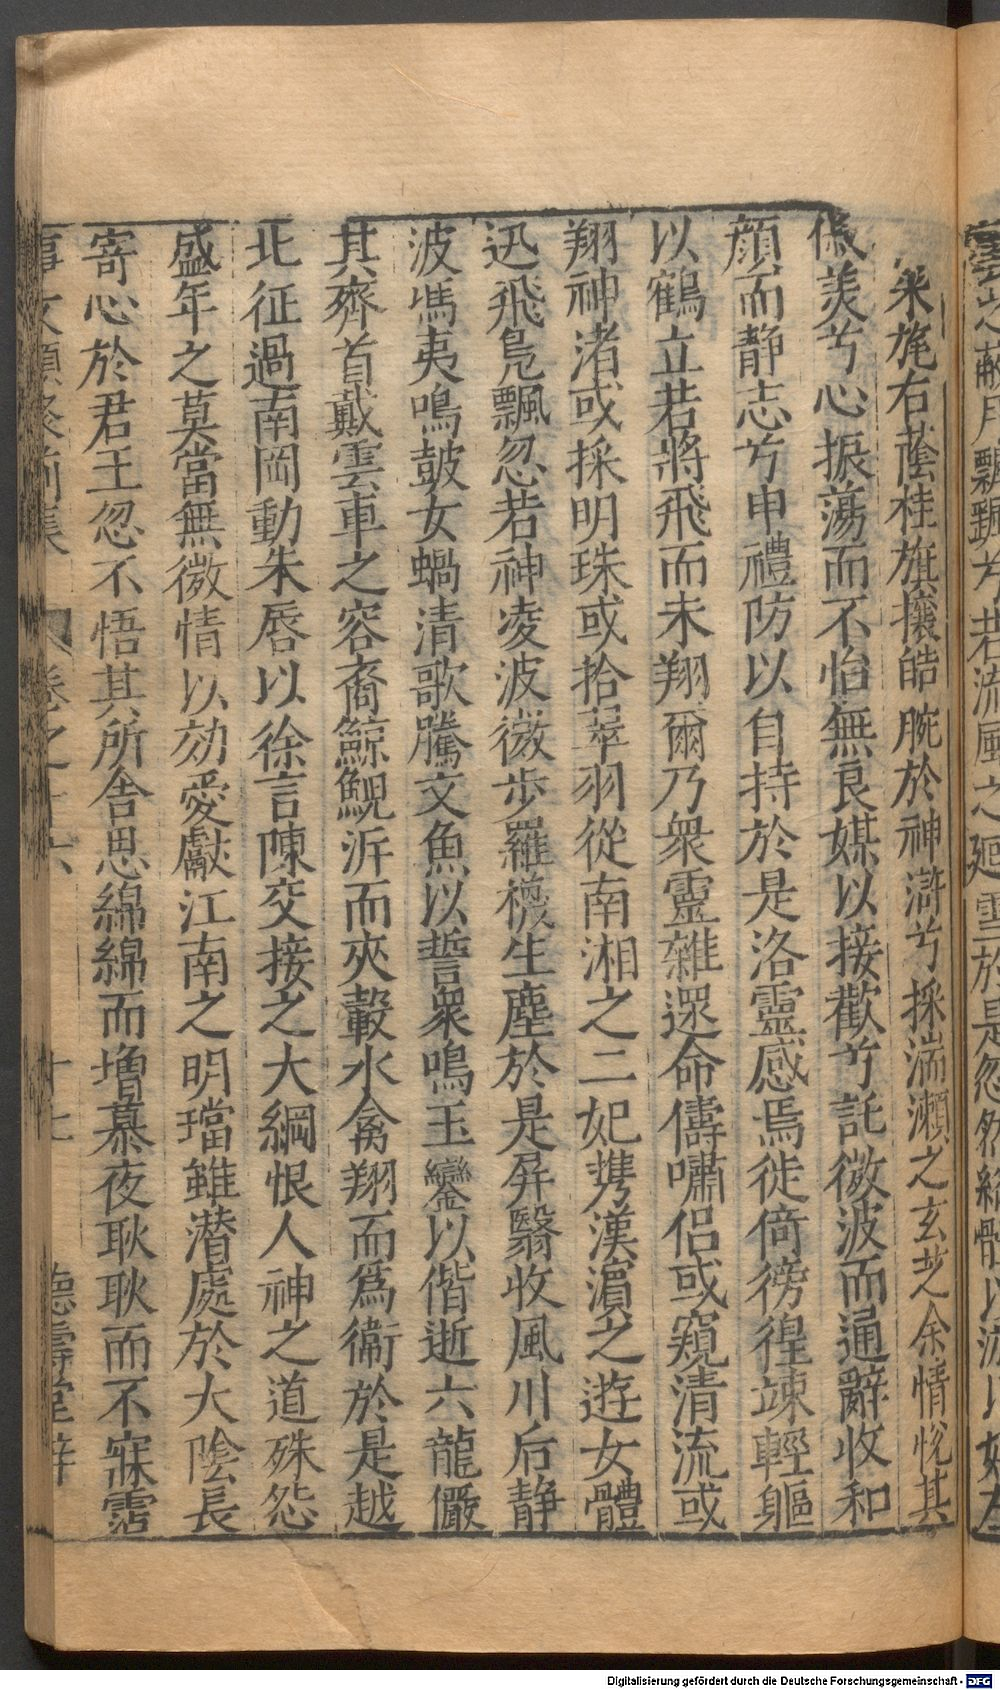 雲之蔽月飄飄兮若流風之廻雪於是忽然縱體以遨以嬉左
釆旄右蔭桂旗攘皓腕於神滸兮採湍瀬之玄芝余情悅其
俶美兮心振蕩而不怡無良媒以接歡兮託微波而通辭收和
顔而靜志兮申禮防以自持於是洛靈感焉徙倚徬徨竦輕軀
以鶴立若將飛而未翔爾乃衆靈雜遝命儔嘯侣或窺清流或
翔神渚或採明珠或拾翠羽從南湘之二妃携漢濵之遊女體
迅飛鳬飄忽若神凌波微步羅襪生塵於是屏翳收風川后静
波馮夷鳴皷女蝸清歌騰文魚以誓衆鳴玉鑾以偕逝六龍儼
其齊首戴雲車之容裔鯨鯢泝而夾轂水禽翔而為衞於是越
北征過南岡動朱唇以徐言陳交接之大綱恨人神之道殊怨
盛年之莫當無微情以効愛獻江南之明璫雖潛處於大陰長
寄心於君王忽不悟其所舎思綿綿而增慕夜耿耿而不寐霑
事文類聚前集 卷之十六 十七 德壽堂梓
Digitalisierung gefördert durch die Deutsche Forschungsgemeinschaft - DFG